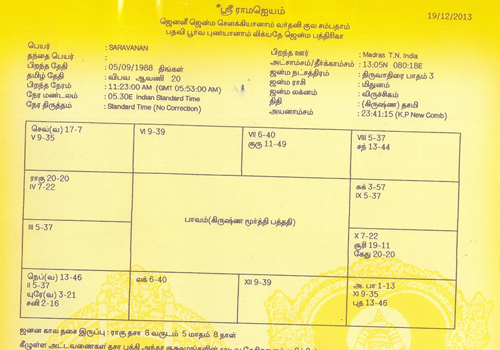 ஸ்ரீ ராமஜெயம்
19/12/2013
ஜெனனீ ஜென்ம சௌக்கியானாம் வர்தனி குல சம்பதாம்
பதவி பூர்வ புண்யானாம் லிக்யதே ஜென்ம பத்திரிகா
பெயர் : SARAVANAN
தந்தை பெயர் :
பிறந்த தேதி : 05/09/1988 திங்கள்
தமிழ் தேதி : விபவ ஆவணி 20
பிறந்த நேரம் : 11:23:00 AM (GMT 05:53:00 AM)
நேர மண்டலம் : 05.30E Indian Standard Time
நேர திருத்தம் : Standard Time (No Correction)
பிறந்த ஊர் : Madras T.N. India
அட்சாம்சம்/தீர்க்காம்சம் : 13:05N 080:18E
ஜன்ம நட்சத்திரம் : திருவாதிரை பாதம் 3
ஜன்ம ராசி : மிதுனம்
ஜன்ம லக்னம் : விருச்சிகம்
திதி : (கிருஷ்ண) தசமி
அயனாம்சம் : 23:41:15 (K.P New Comb)
செவ்(வ) 17-7
V 9-35
VI 9-39
VII 6-40
குரு 11-49
VIII 5-37
சந் 13-44
ராகு 20-20
IV 7-22
சுக் 3-57
IX 5-37
பாவம்(கிருஷ்ண மூர்த்தி பத்ததி)
III 5-37
X 7-22
சூரி 19-11
கேது 20-20
நெப்(வ) 13-46
II 5-37
யுரே(வ) 3-21
சனி 2-16
லக் 6-40
XII 9-39
அ. பா 1-13
XI 9-35
புத 13-46
ஜனன கால தசை இருப்பு : ராகு தசா 8 வருடம் 5 மாதம் 8 நாள்